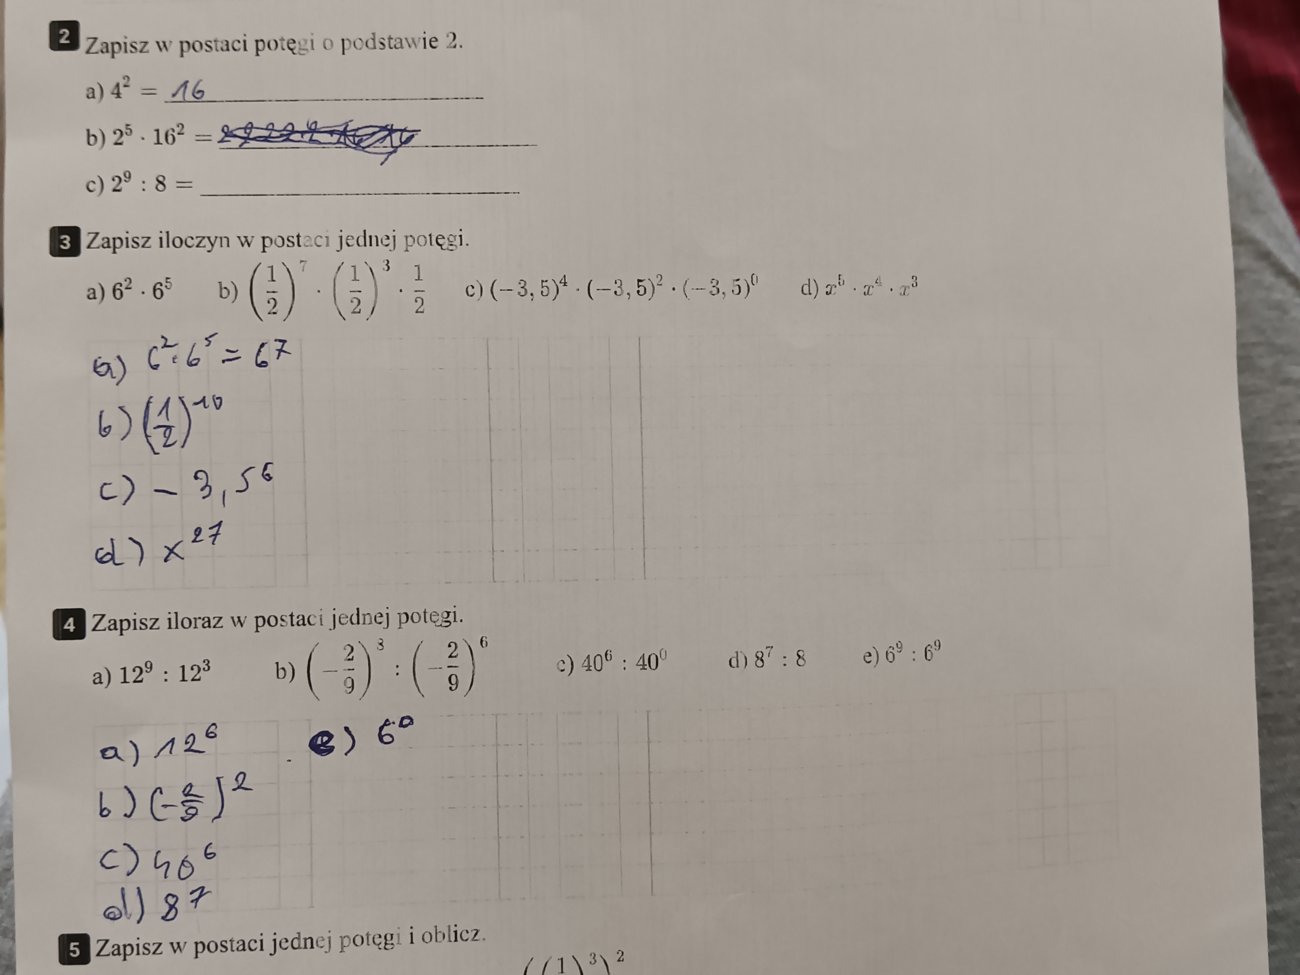 2 Zapisz w postaci potęgi o podstawie 2.
a) 4² = 16
b) 2⁵ · 16² =
c) 2⁹ : 8 =
3 Zapisz iloczyn w postaci jednej potęgi.
a) 6² · 6⁵ b) (1/2)⁷ · (1/2)³ · 1/2 c) (−3,5)⁴ · (−3,5)² · (−3,5)⁰ d) x⁵ · x⁴ · x³
a) 6² · 6⁵ = 6⁷
b) (1/2)¹⁰
c) − 3,5⁶
d) x²⁷
4 Zapisz iloraz w postaci jednej potęgi.
a) 12⁹ : 12³ b) (−2/9)³ : (−2/9)⁶ c) 40⁶ : 40⁰ d) 8⁷ : 8 e) 6⁹ : 6⁹
a) 12⁶ e) 6⁰
b) (−2/9)²
c) 40⁶
d) 8⁷
5 Zapisz w postaci jednej potęgi i oblicz.
((1)³)²